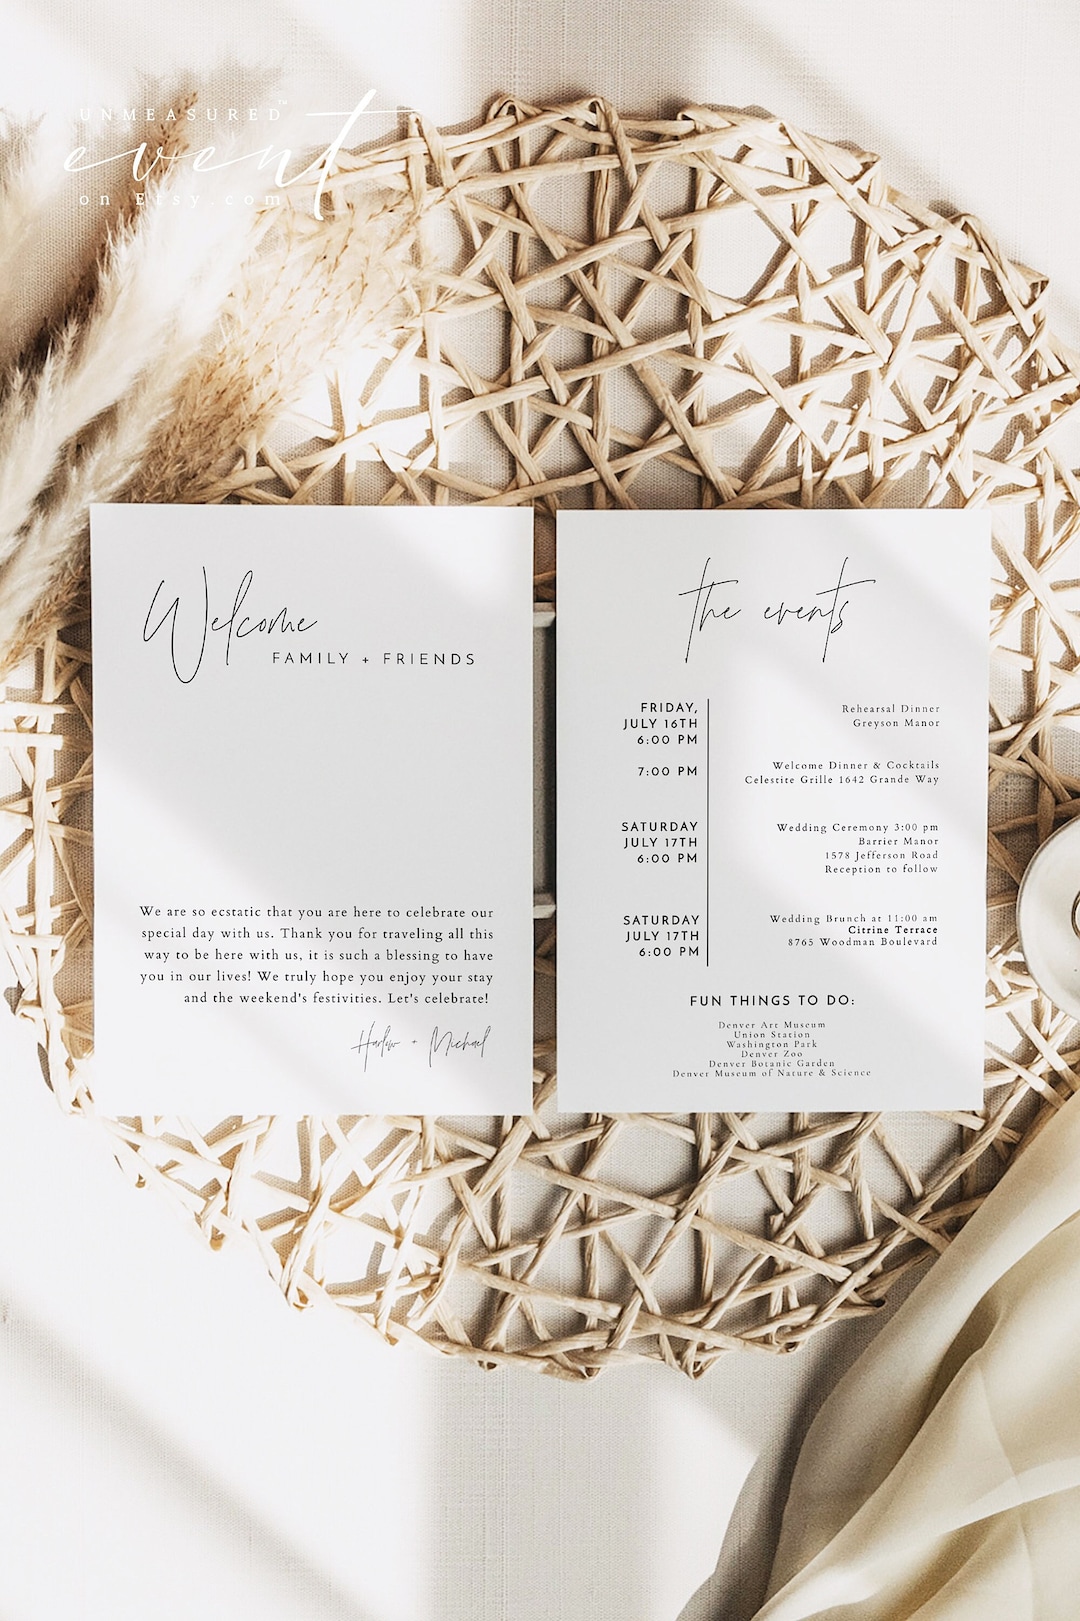 UNMEASURED™
event
on Etsy.com
Welcome
FAMILY + FRIENDS
We are so ecstatic that you are here to celebrate our
special day with us. Thank you for traveling all this
way to be here with us, it is such a blessing to have
you in our lives! We truly hope you enjoy your stay
and the weekend's festivities. Let's celebrate!
Harlow + Michael
the events
FRIDAY,
JULY 16TH
6:00 PM
Rehearsal Dinner
Greyson Manor
7:00 PM
Welcome Dinner & Cocktails
Celestite Grille 1642 Grande Way
SATURDAY
JULY 17TH
6:00 PM
Wedding Ceremony 3:00 pm
Barrier Manor
1578 Jefferson Road
Reception to follow
SATURDAY
JULY 17TH
6:00 PM
Wedding Brunch at 11:00 am
Citrine Terrace
8765 Woodman Boulevard
FUN THINGS TO DO:
Denver Art Museum
Union Station
Washington Park
Denver Zoo
Denver Botanic Garden
Denver Museum of Nature & Science